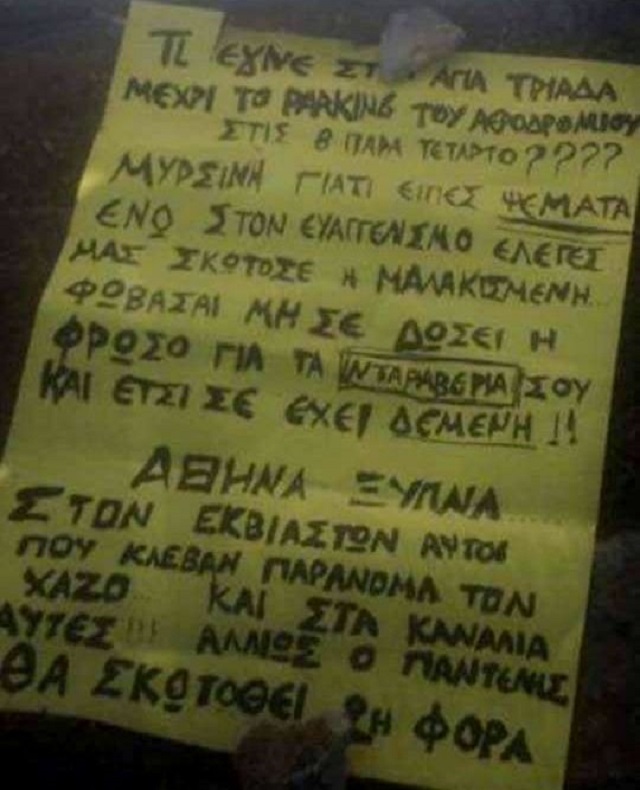 ΤΙ ΕΓΙΝΕ ΣΤ ΑΓΙΑ ΤΡΙΑΔΑ
ΜΕΧΡΙ ΤΟ PARKING ΤΟΥ ΑΕΡΟΔΡΟΜΙΟΥ
ΣΤΙΣ 8 ΠΑΡΑ ΤΕΤΑΡΤΟ????
ΜΥΡΣΙΝΗ ΓΙΑΤΙ ΕΙΠΕΣ ΨΕΜΑΤΑ
ΕΝΩ ΣΤΟΝ ΕΥΑΓΓΕΛΙΣΜΟ ΕΛΕΓΕΣ
ΜΑΣ ΣΚΩΤΟΣΕ Η ΜΑΛΑΚΙΣΜΕΝΗ...
ΦΩΒΑΣΑΙ ΜΗ ΣΕ ΔΩΣΕΙ Η
ΦΡΩΣΟ ΓΙΑ ΤΑ ΙΝΤΑΡΑΒΕΡΙΑ ΣΟΥ
ΚΑΙ ΕΤΣΙ ΣΕ ΕΧΕΙ ΔΕΜΕΝΗ!!
ΑΘΗΝΑ ΞΥΠΝΑ......
ΣΤΟΝ ΕΚΒΙΑΣΤΩΝ ΑΥΤΟΙ
ΠΟΥ ΚΛΕΒΑΝ ΠΑΡΑΝΟΜΑ ΤΟΝ
ΧΑΖΟ... ΚΑΙ ΣΤΑ ΚΑΝΑΛΙΑ
ΑΥΤΕΣ!!! ΑΛΛΙΩΣ Ο ΠΑΝΤΕΛΗΣ
ΘΑ ΣΚΩΤΟΘΕΙ 2Η ΦΟΡΑ